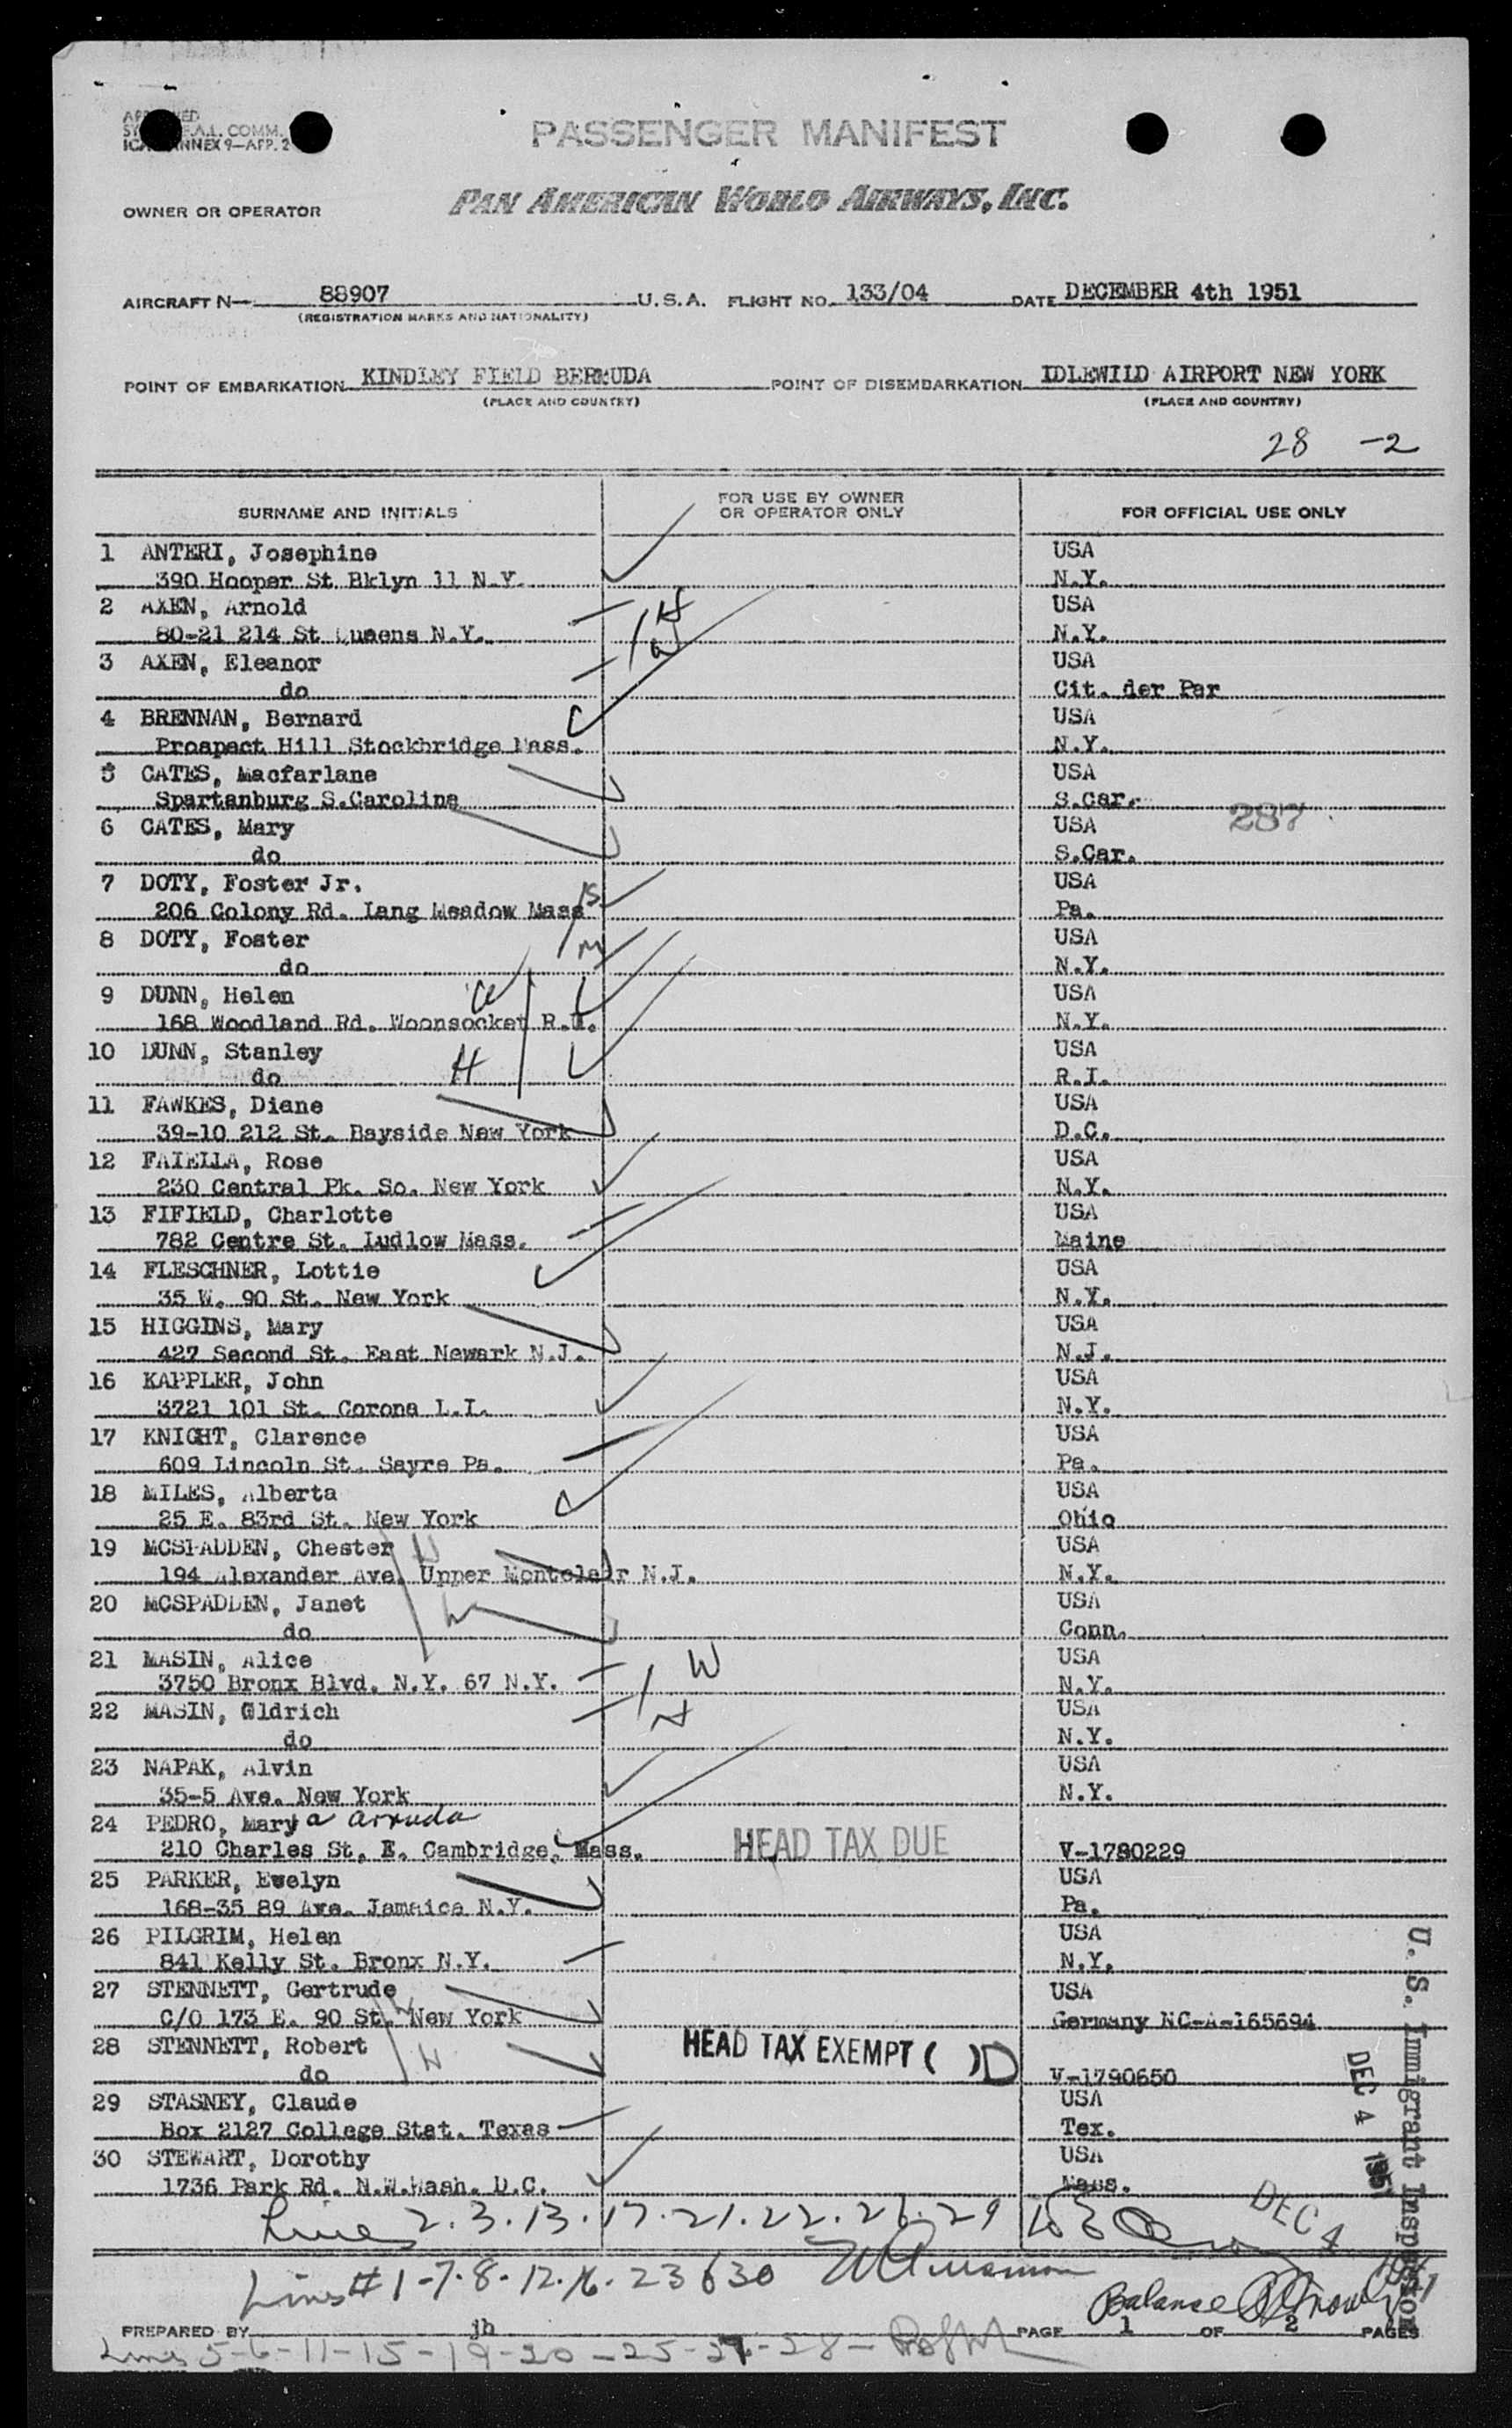 PASSENGER MANIFEST
PAN AMERICAN WORLD AIRWAYS, INC.
OWNER OR OPERATOR
AIRCRAFT N— 88907 U.S.A. FLIGHT NO. 133/04 DATE DECEMBER 4th 1951
(REGISTRATION MARKS AND NATIONALITY)
POINT OF EMBARKATION KINDLEY FIELD BERMUDA POINT OF DISEMBARKATION IDLEWILD AIRPORT NEW YORK
(PLACE AND COUNTRY) (PLACE AND COUNTRY)
28 -2
SURNAME AND INITIALS FOR USE BY OWNER OR OPERATOR ONLY FOR OFFICIAL USE ONLY
1 ANTERI, Josephine USA
390 Hooper St Bklyn 11 N.Y. N.Y.
2 AXEN, Arnold H USA
80-21 214 St Queens N.Y. W N.Y.
3 AXEN, Eleanor USA
do Cit. der Par
4 BRENNAN, Bernard USA
Prospect Hill Stockbridge Mass. N.Y.
5 CATES, Macfarlane USA
Spartanburg S.Carolina S.Car.
6 CATES, Mary USA 287
do S.Car.
7 DOTY, Foster Jr. USA
206 Colony Rd. Lang Meadow Mass S Pa.
8 DOTY, Foster M USA
do N.Y.
9 DUNN, Helen W USA
168 Woodland Rd. Woonsocket R.I. N.Y.
10 DUNN, Stanley H USA
do R.I.
11 FAWKES, Diane USA
39-10 212 St. Bayside New York D.C.
12 FAIELLA, Rose USA
230 Central Pk. So. New York N.Y.
13 FIFIELD, Charlotte USA
782 Centre St. Ludlow Mass. Maine
14 FLESCHNER, Lottie USA
35 W. 90 St. New York N.Y.
15 HIGGINS, Mary USA
427 Second St. East Newark N.J. N.J.
16 KAPPLER, John USA
3721 101 St. Corona L.I. N.Y.
17 KNIGHT, Clarence USA
609 Lincoln St. Sayre Pa. Pa.
18 MILES, Alberta USA
25 E. 83rd St. New York Ohio
19 MCSPADDEN, Chester USA
194 Alexander Ave. Upper Montclair N.J. N.Y.
20 MCSPADDEN, Janet USA
do Conn.
21 MASIN, Alice W USA
3750 Bronx Blvd. N.Y. 67 N.Y. N.Y.
22 MASIN, Oldrich H USA
do N.Y.
23 NAPAK, Alvin USA
35-5 Ave. New York N.Y.
24 PEDRO, Mary a Arruda
210 Charles St. E. Cambridge, Mass. HEAD TAX DUE V-1780229
25 PARKER, Evelyn USA
168-35 89 Ave. Jamaica N.Y. Pa.
26 PILGRIM, Helen USA
841 Kelly St. Bronx N.Y. N.Y.
27 STENNETT, Gertrude W USA
C/O 173 E. 90 St. New York Germany NC-A-165694
28 STENNETT, Robert H HEAD TAX EXEMPT ( )D
do V-1790650
29 STASNEY, Claude USA
Box 2127 College Stat. Texas Tex.
30 STEWART, Dorothy USA
1736 Park Rd. N.W.Wash. D.C. Mass.
U. S. Immigrant Inspector
DEC 4 1951
DEC 4 1951
Lines 2.3.13.17.21.22.26.29
Lines #1-7-8-12-16-23 & 30
Balance
PREPARED BY jb PAGE 1 OF 2 PAGES
Lines 5-6-11-15-19-20-25-27-28-